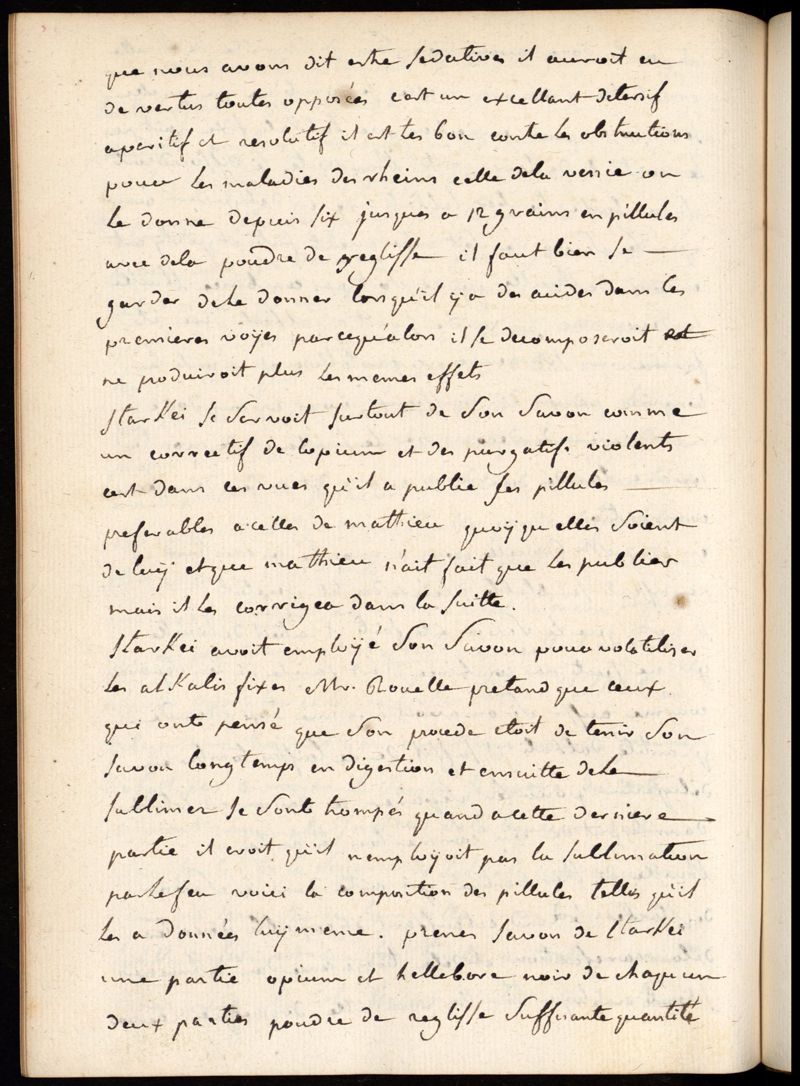 que nous avons dit estre sedatives il auroit eu
de vertus toutes opposées c'est un excellant detersif
aperitif et resolutif il est tes bon contre les obstructions
pour les maladies des rheins celle dela vessie on
le donne depuis six jusques a 12 grains en pillules
avec dela poudre de reglisse il faut bien se
garder dele donner lorsqu'il y a des acides dans les
premieres voyes parcequ'alors il se decomposeroit et
ne produiroit plus les memes effets
Starkei se servoit surtout de son savon comme
un correctif de lopium et des purgatifs violents
cest dans ces vues qu'il a publie ses pillules
preferables a celles de mathieu quoÿqu elles soient
de luÿ et que mathieu n'ait fait que les publier
mais il les corrigea dans la suitte.
Starkei avoit employé son savon pour volatiliser
les alkalis fixes Mr. Rouelle pretand que ceux
qui onts pensé que son procede etoit de tenir son
savon longtemps en digestion et ensuitte dele
sublimer se sonts trompés quand a cette derniere
partie il croit qu'il n'employoit pas la sublimation
par le feu voici la composition des pillules telles qu'il
les a données luÿ meme. prenes savon de Starkei
une partie opium et hellebore noir de chaqu'un
deux parties poudre de reglisse suffisante quantité